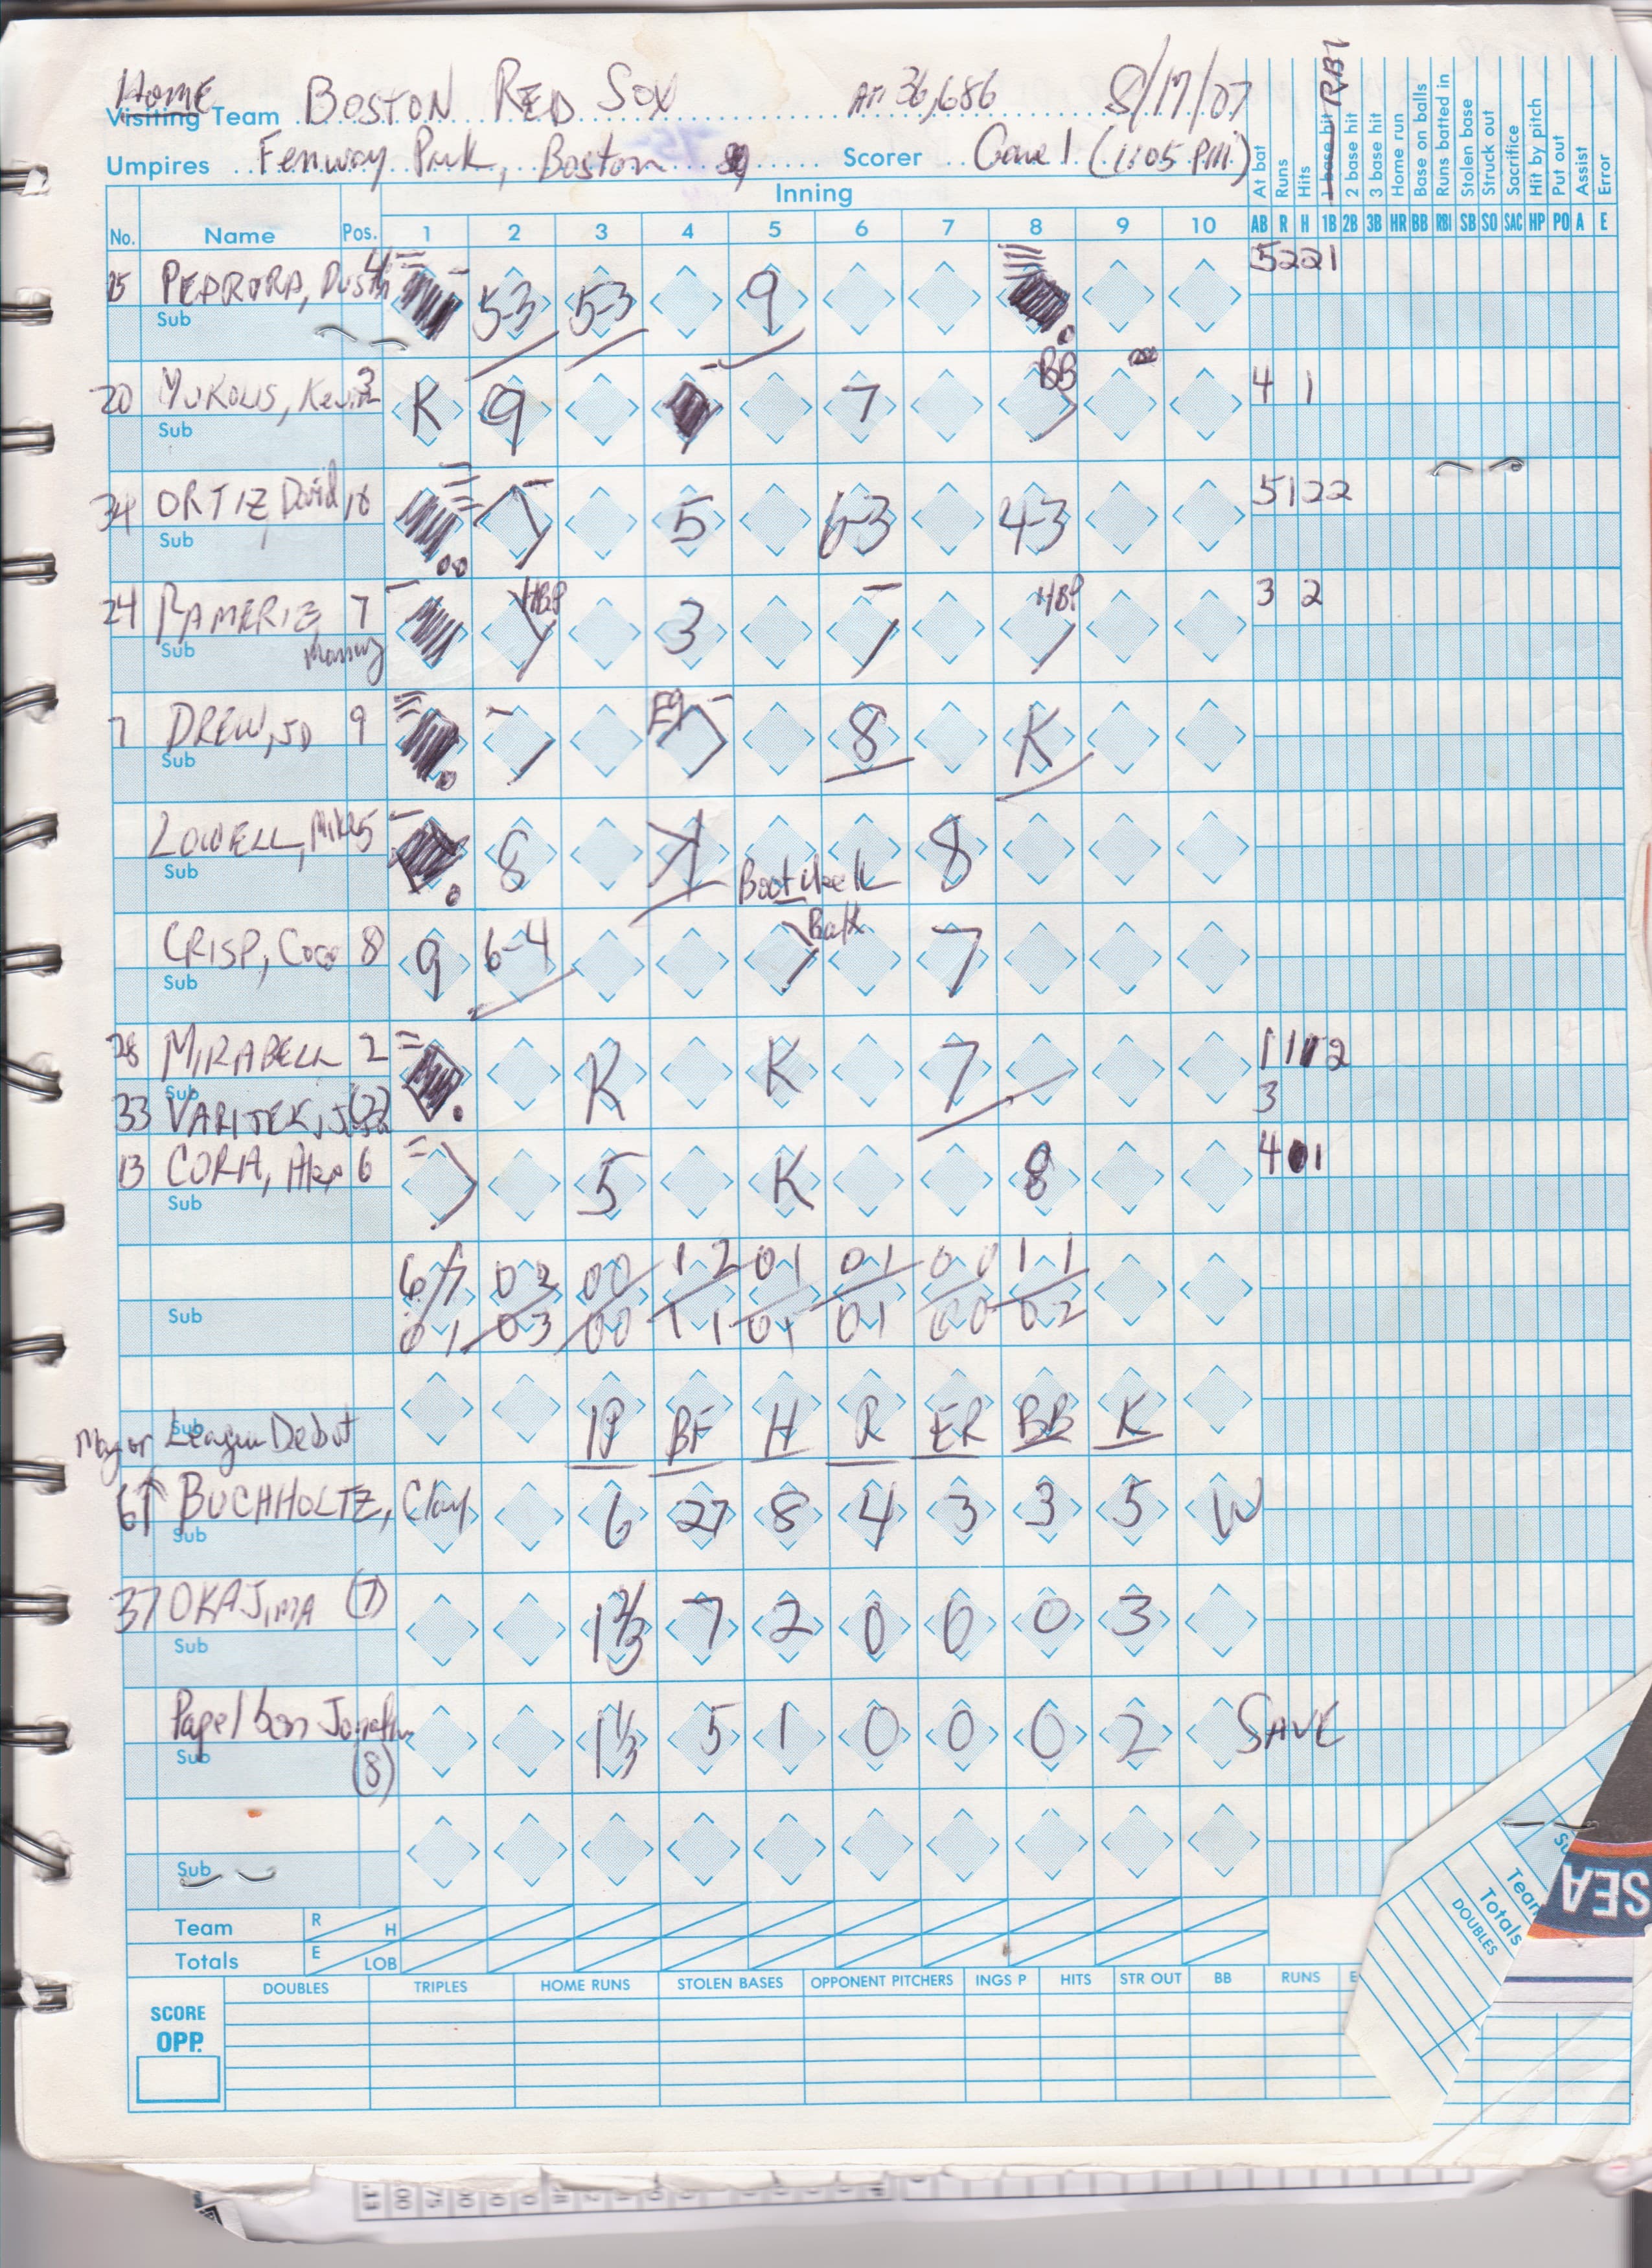 Home
Visiting Team BOSTON RED SOX Att 36,686 8/17/07
Umpires Fenway Park, Boston Scorer Game 1 (1:05 PM)
At bat Runs Hits 1 base hit RBI 2 base hit 3 base hit Home run Base on balls Runs batted in Stolen base Struck out Sacrifice Hit by pitch Put out Assist Error
Inning
No. Name Pos. 1 2 3 4 5 6 7 8 9 10 AB R H 1B 2B 3B HR BB RBI SB SO SAC HP PO A E
15 PEDRORA, Dustin 4 5-3 5-3 9 5 2 2 1
Sub
20 YUKOLIS, Kevin 3 K 9 7 BB 4 1
Sub
34 ORTIZ, David 10 5 6-3 4-3 5 1 2 2
Sub
24 RAMERIZ, 7 HBP 3 HBP 3 2
Sub Manny
7 DREW, JD 9 E9 8 K
Sub
LOWELL, Mike 5 8 K 8
Sub
CRISP, Coco 8 9 6-4 Balk 7
Sub
28 MIRABELL 2 K K 7 1 1 1 2
Sub
33 VARITEK, J 3
13 CORA, Alex 6 5 K 8 4 0 1
Sub
6/7 0 2 0 0 1 2 0 1 0 1 0 0 1 1
Sub
0 1 0 3 0 0 1 1 0 1 0 1 0 0 0 2
Sub
Major League Debut IP BF H R ER BB K
61 BUCHHOLTZ, Clay 6 27 8 4 3 3 5 W
Sub
37 OKAJIMA (7) 1 2/3 7 2 0 0 0 3
Sub
Papelbon Jonathan 1 1/3 5 1 0 0 0 2 SAVE
Sub (8)
Sub
Team R H
Totals E LOB
DOUBLES TRIPLES HOME RUNS STOLEN BASES OPPONENT PITCHERS INGS P HITS STR OUT BB RUNS E
SCORE
OPP.
Team
Totals
DOUBLES
SEA